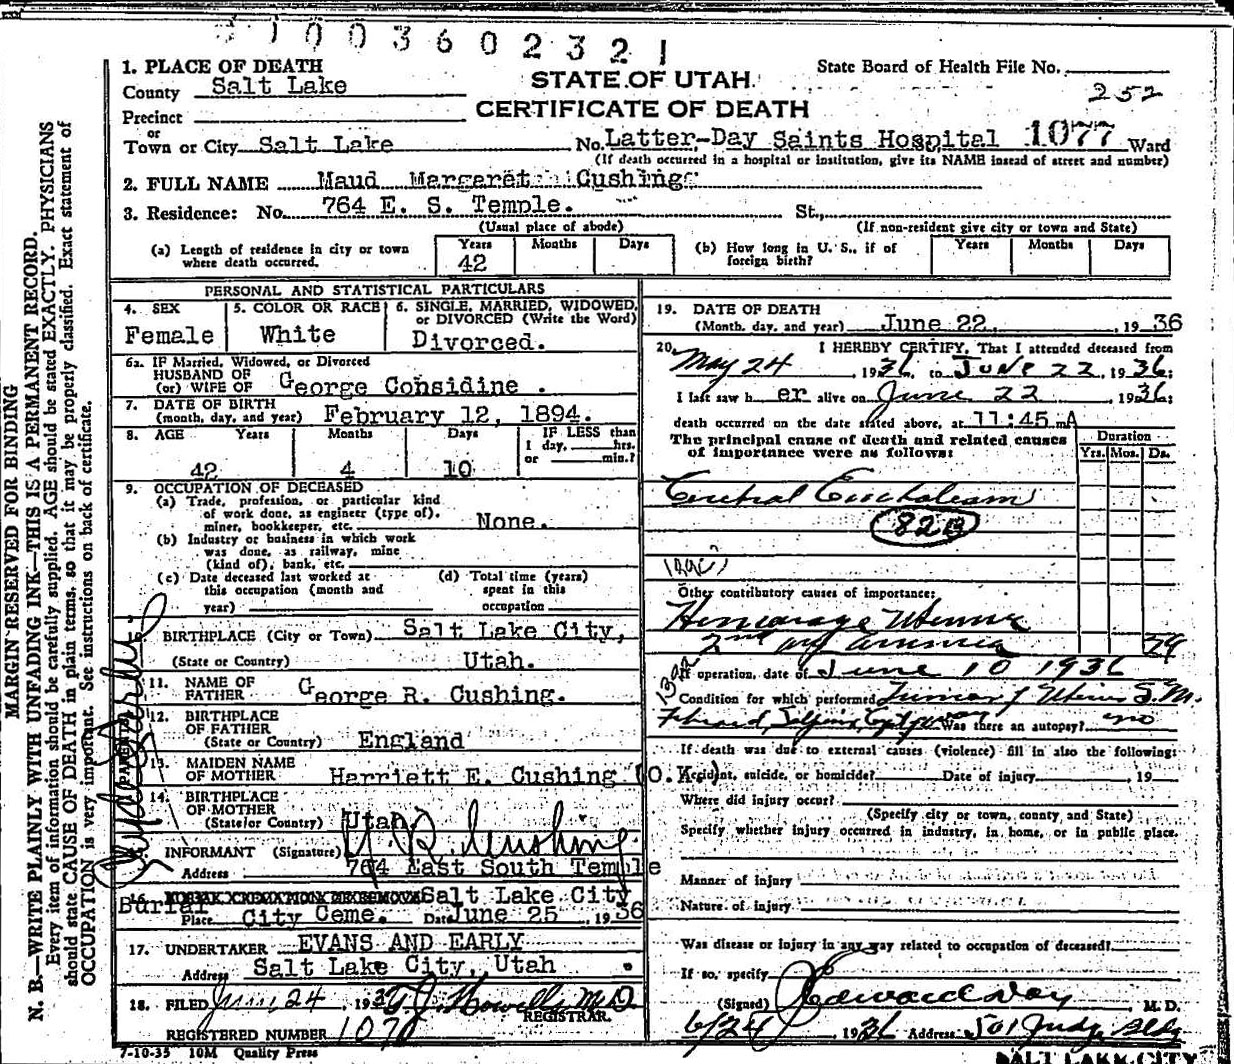 1003602321
1. PLACE OF DEATH
County Salt Lake
Precinct
or
Town or City Salt Lake
STATE OF UTAH
CERTIFICATE OF DEATH
State Board of Health File No.
252
No. Latter-Day Saints Hospital 1077 Ward
(If death occurred in a hospital or institution, give its NAME instead of street and number)
2. FULL NAME Maud Margaret Cushing
3. Residence: No. 764 E. S. Temple. St.,
(Usual place of abode)
(If non-resident give city or town and State)
(a) Length of residence in city or town where death occurred.
Years Months Days
42
(b) How long in U. S., if of foreign birth?
Years Months Days
MARGIN RESERVED FOR BINDING
N. B.—WRITE PLAINLY WITH UNFADING INK—THIS IS A PERMANENT RECORD.
Every item of information should be carefully supplied. AGE should be stated EXACTLY. PHYSICIANS
should state CAUSE OF DEATH in plain terms, so that it may be properly classified. Exact statement of
OCCUPATION is very important. See instructions on back of certificate.
PERSONAL AND STATISTICAL PARTICULARS
4. SEX
Female
5. COLOR OR RACE
White
6. SINGLE, MARRIED, WIDOWED,
or DIVORCED (Write the Word)
Divorced.
6a. IF Married, Widowed, or Divorced
HUSBAND OF
(or) WIFE OF George Considine.
7. DATE OF BIRTH
(month, day, and year) February 12, 1894.
8. AGE Years Months Days
42 4 10
IF LESS than
1 day, hrs.
or min.?
9. OCCUPATION OF DECEASED
(a) Trade, profession, or particular kind
of work done, as engineer (type of),
miner, bookkeeper, etc. None.
(b) Industry or business in which work
was done, as railway, mine
(kind of), bank, etc.
(c) Date deceased last worked at
this occupation (month and
year)
(d) Total time (years)
spent in this
occupation
10. BIRTHPLACE (City or Town) Salt Lake City,
(State or Country) Utah.
PARENTS
11. NAME OF
FATHER George R. Cushing.
12. BIRTHPLACE
OF FATHER
(State or Country) England
13. MAIDEN NAME
OF MOTHER Harriett E. Cushing (O.K.)
14. BIRTHPLACE
OF MOTHER
(State or Country) Utah
15. INFORMANT (Signature) Cushing
Address 764 East South Temple
16. BURIAL, CREMATION OR REMOVAL Salt Lake City
Burial
Place City Ceme. Date June 25, 1936
17. UNDERTAKER EVANS AND EARLY
Address Salt Lake City, Utah
18. FILED June 24, 1936 T. J. Howells M.D.
REGISTRAR.
REGISTERED NUMBER 1070
7-10-35 10M Quality Press
19. DATE OF DEATH
(Month, day, and year) June 22, 1936
20. I HEREBY CERTIFY, That I attended deceased from
May 24, 1936, to June 22, 1936;
I last saw her alive on June 22, 1936;
death occurred on the date stated above, at 11:45 mA
The principal cause of death and related causes
of importance were as follows:
Duration
Yrs. Mos. Ds.
82B
Other contributory causes of importance:
Uterus
2nd
If operation, date of June 10 1936
Condition for which performed Tumor of Uterus S.M.
Fibroid, Was there an autopsy? no
If death was due to external causes (violence) fill in also the following:
Accident, suicide, or homicide? Date of injury , 19
Where did injury occur?
(Specify city or town, county and State)
Specify whether injury occurred in industry, in home, or in public place.
Manner of injury
Nature of injury
Was disease or injury in any way related to occupation of deceased?
If so, specify
(Signed) J Edward Day, M. D.
6/24 1936 Address 501 Judge Bldg
SALT LAKE CITY